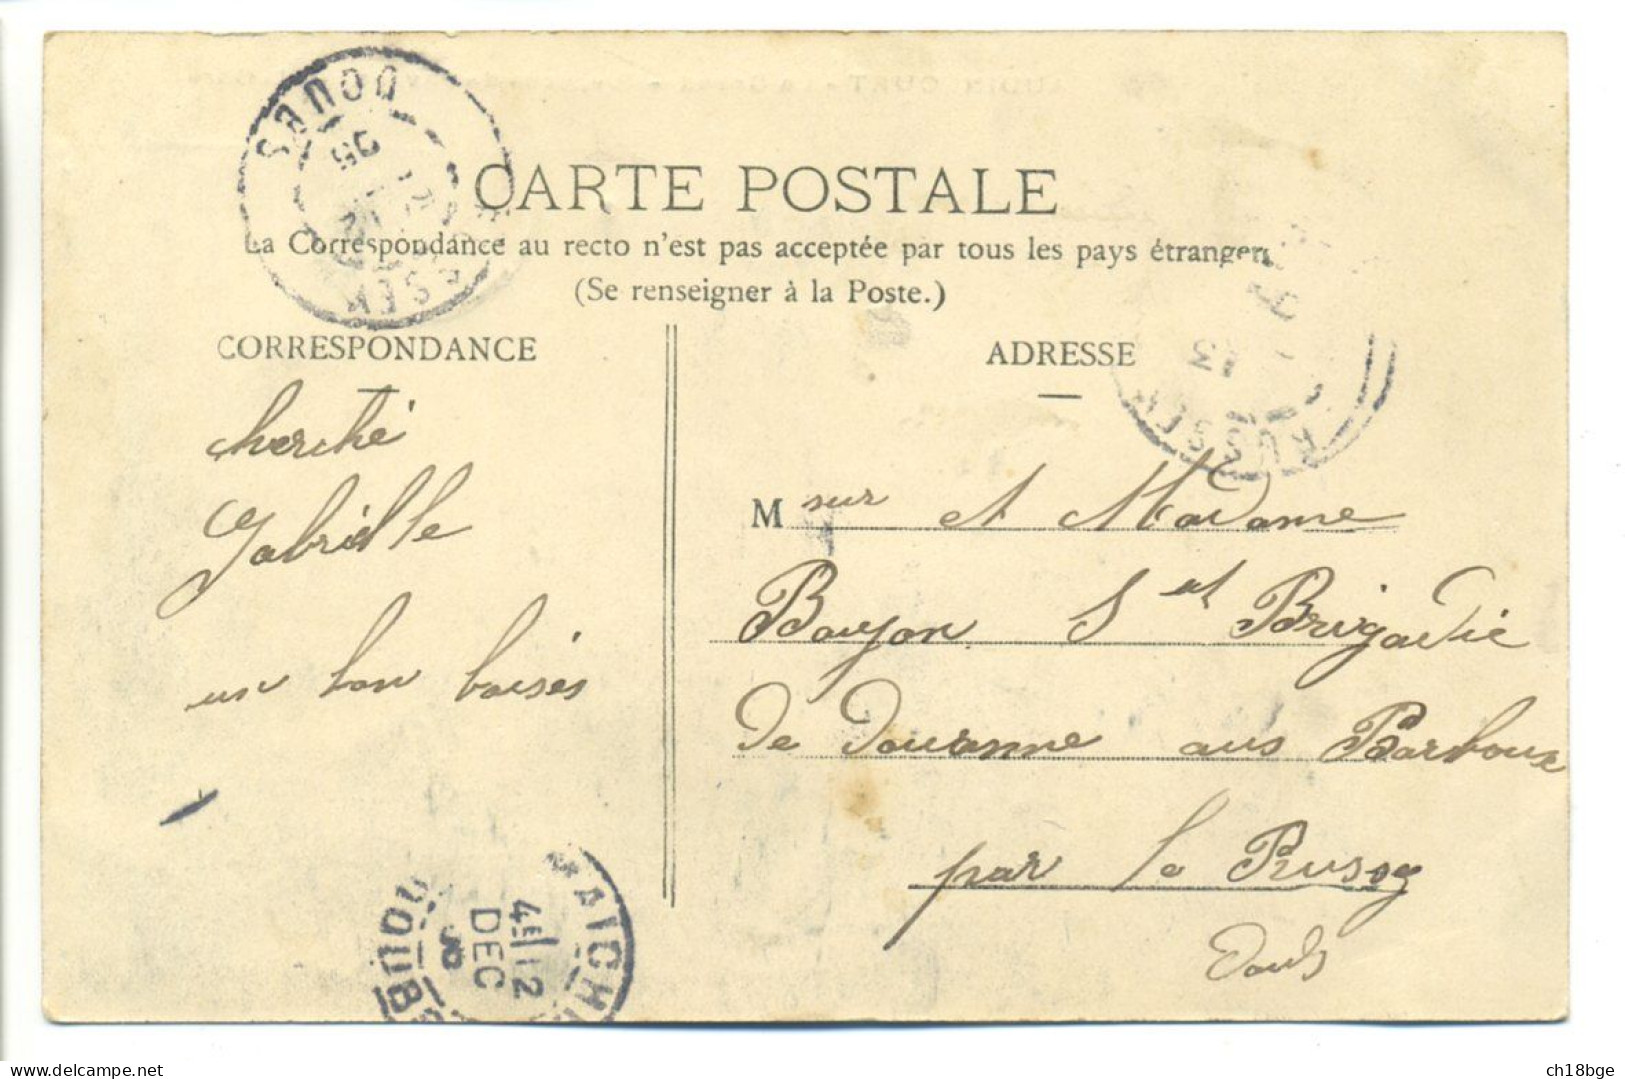 CARTE POSTALE
La Correspondance au recto n'est pas acceptée par tous les pays étrangers
(Se renseigner à la Poste.)
CORRESPONDANCE
ADRESSE
cherché
Gabrielle
un bon baisés
M sur et Madame
Bouyon S et Brigadié
de Douanne aus Barboux
par le Russey
Doubs
DOUBS
05
RUSSEY
13
MAICHE
4E 12
DEC
DOUBS
ch18bge